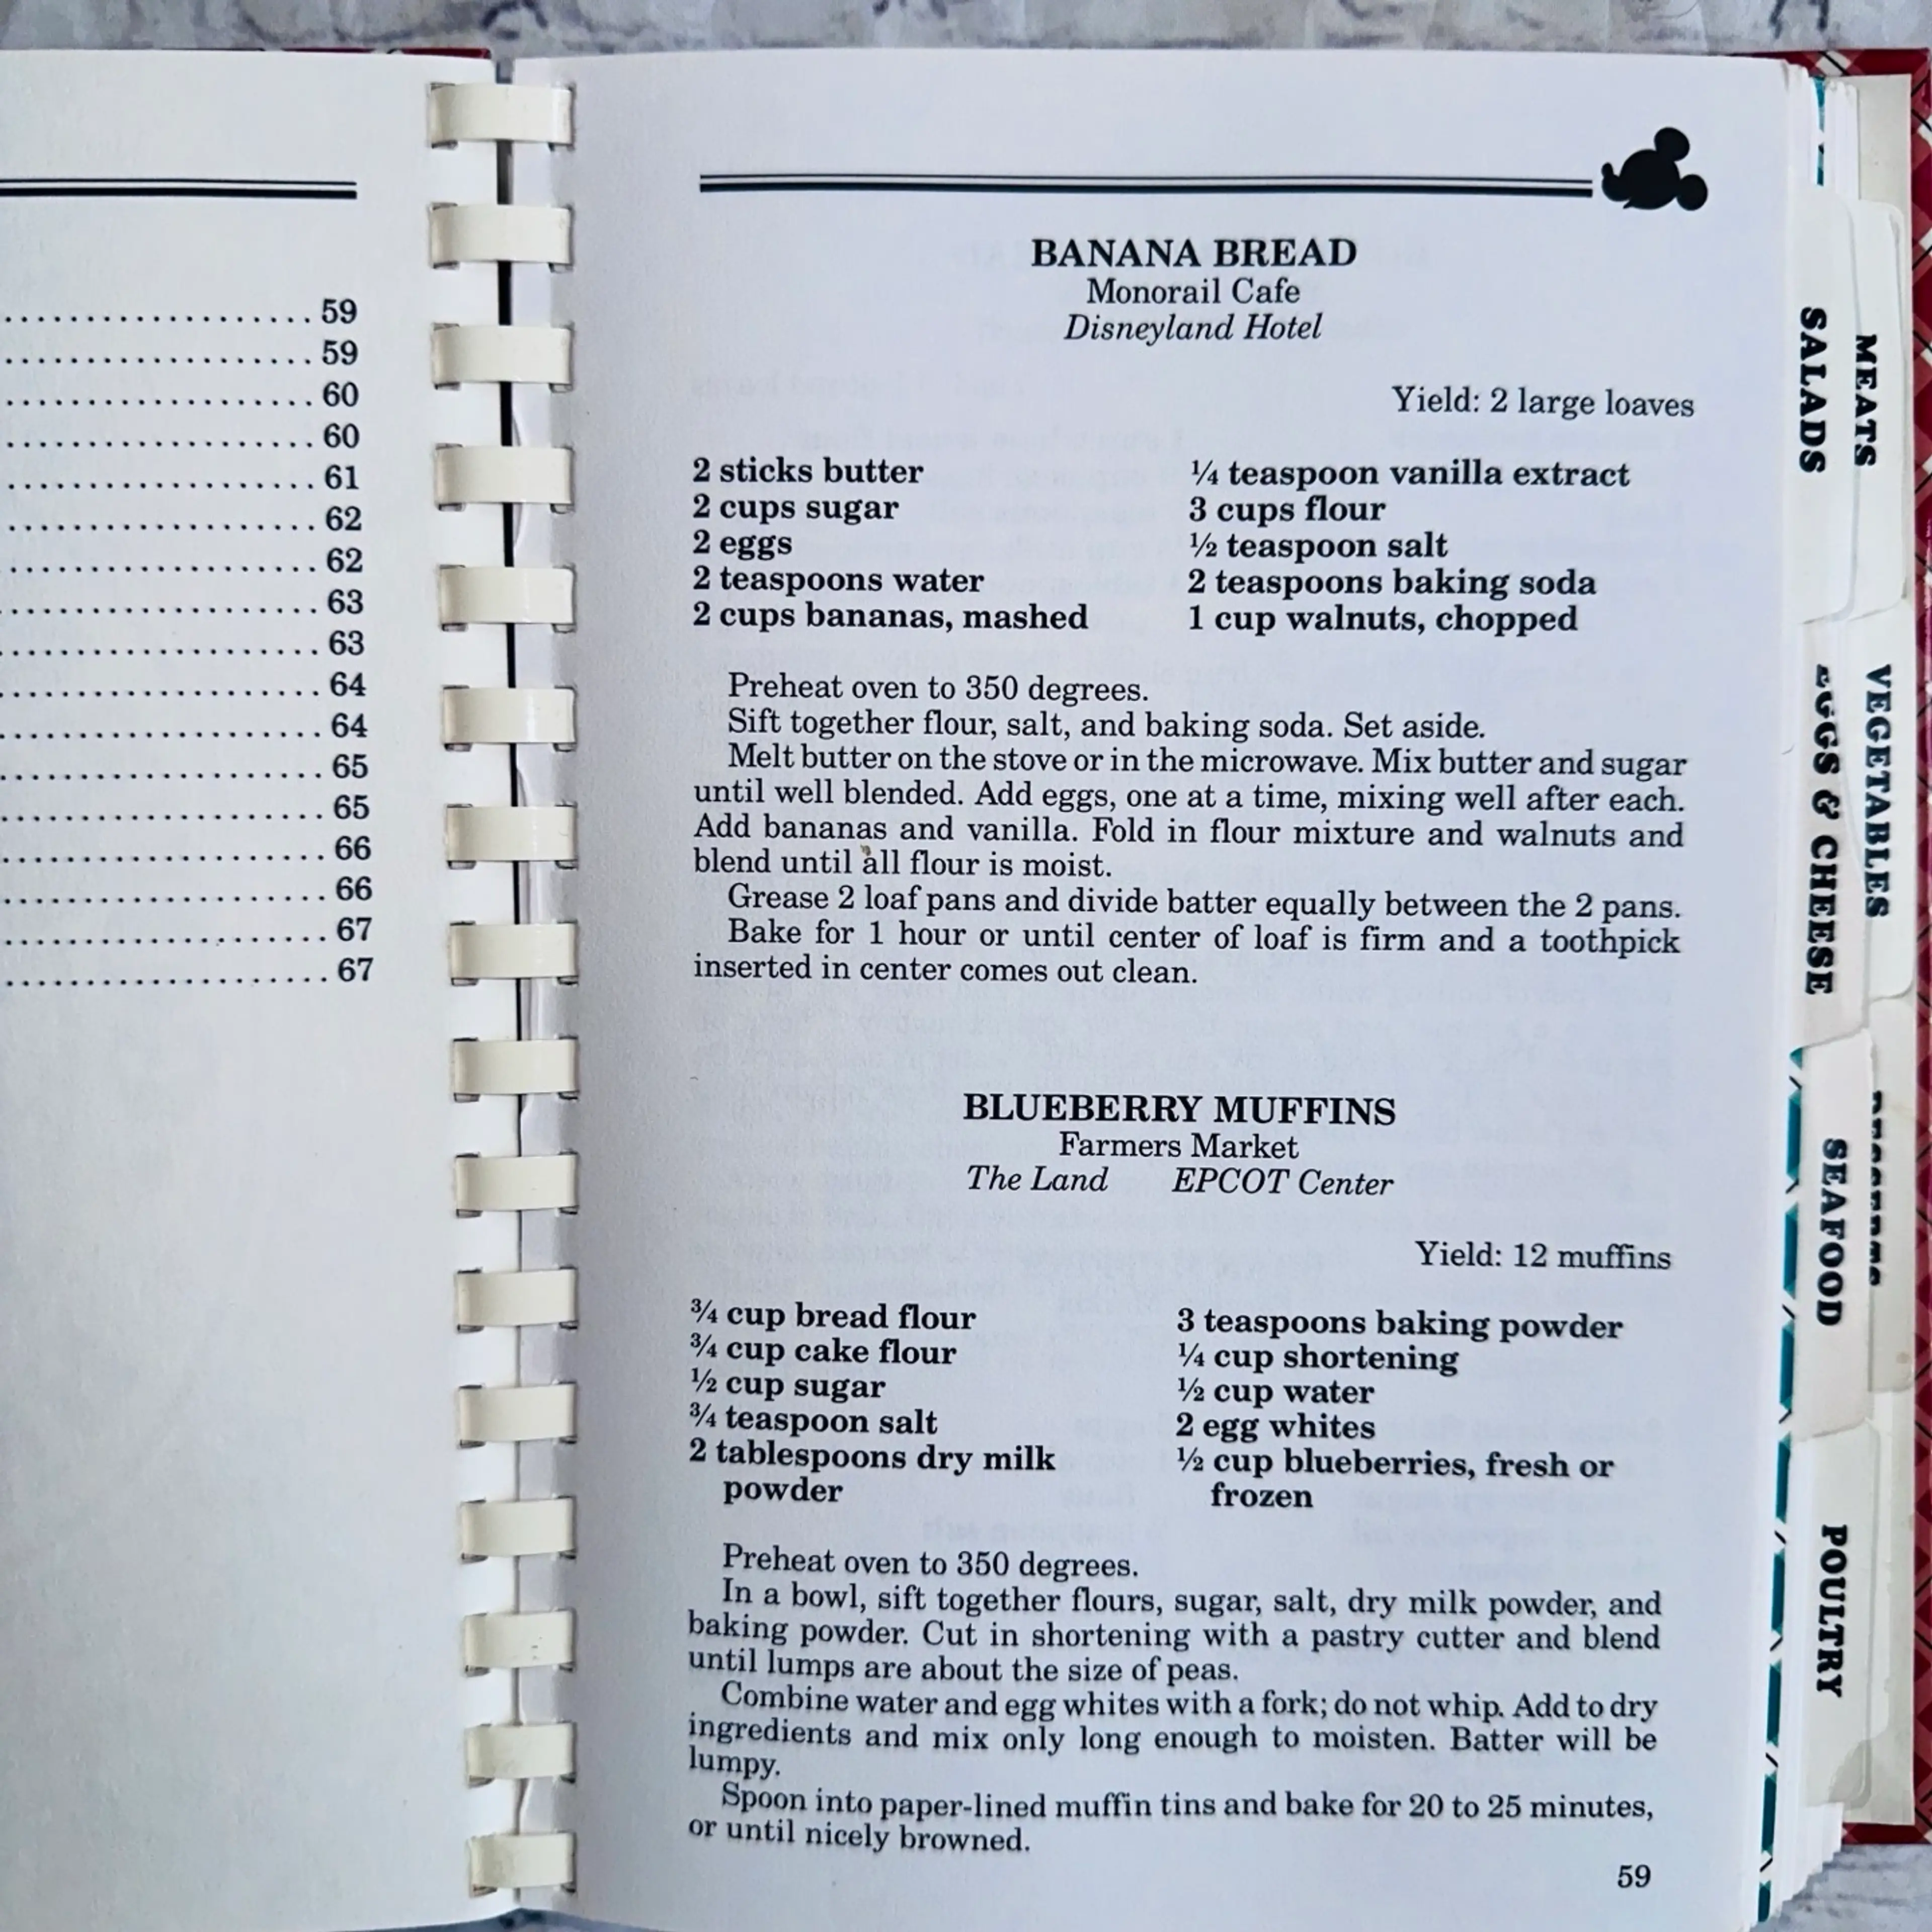 59
59
60
60
61
62
62
63
63
64
64
65
65
66
66
67
67
BANANA BREAD
Monorail Cafe
Disneyland Hotel
Yield: 2 large loaves
2 sticks butter
2 cups sugar
2 eggs
2 teaspoons water
2 cups bananas, mashed
¼ teaspoon vanilla extract
3 cups flour
½ teaspoon salt
2 teaspoons baking soda
1 cup walnuts, chopped
Preheat oven to 350 degrees.
Sift together flour, salt, and baking soda. Set aside.
Melt butter on the stove or in the microwave. Mix butter and sugar
until well blended. Add eggs, one at a time, mixing well after each.
Add bananas and vanilla. Fold in flour mixture and walnuts and
blend until all flour is moist.
Grease 2 loaf pans and divide batter equally between the 2 pans.
Bake for 1 hour or until center of loaf is firm and a toothpick
inserted in center comes out clean.
BLUEBERRY MUFFINS
Farmers Market
The Land EPCOT Center
Yield: 12 muffins
¾ cup bread flour
¾ cup cake flour
½ cup sugar
¾ teaspoon salt
2 tablespoons dry milk
powder
3 teaspoons baking powder
¼ cup shortening
½ cup water
2 egg whites
½ cup blueberries, fresh or
frozen
Preheat oven to 350 degrees.
In a bowl, sift together flours, sugar, salt, dry milk powder, and
baking powder. Cut in shortening with a pastry cutter and blend
until lumps are about the size of peas.
Combine water and egg whites with a fork; do not whip. Add to dry
ingredients and mix only long enough to moisten. Batter will be
lumpy.
Spoon into paper-lined muffin tins and bake for 20 to 25 minutes,
or until nicely browned.
59
SALADS
EGGS & CHEESE
SEAFOOD
POULTRY
MEATS
VEGETABLES